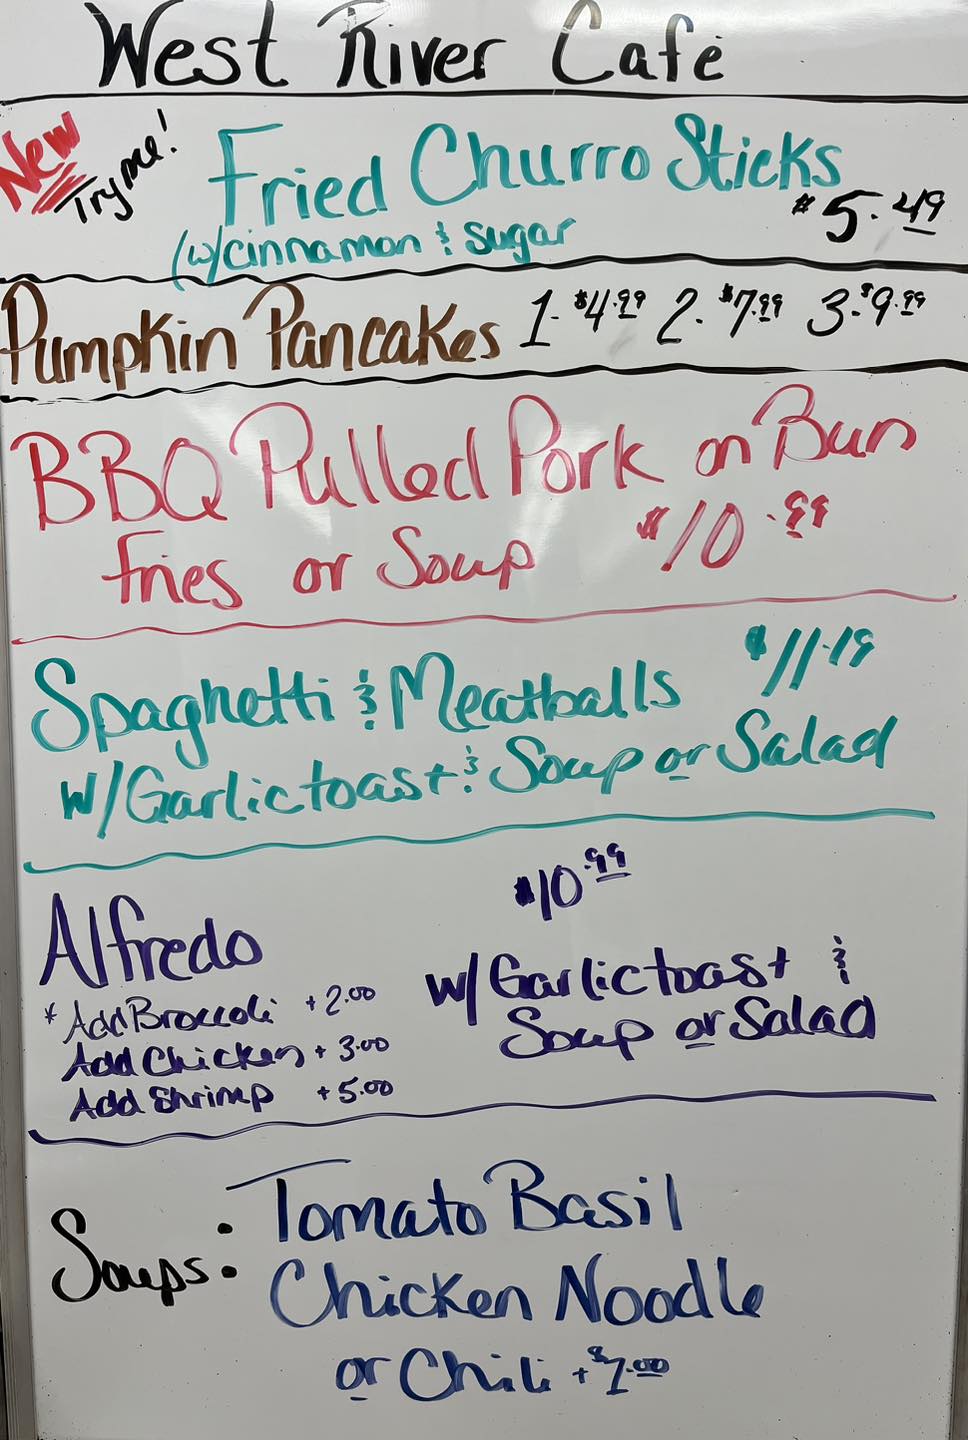 West River Café
New Try me!
Fried Churro Sticks
(w/cinnamon & sugar $5.49
Pumpkin Pancakes 1. $4.99 2. $7.99 3. $9.99
BBQ Pulled Pork on Bun
Fries or Soup $10.99
Spaghetti & Meatballs $11.19
w/Garlictoast & Soup or Salad
Alfredo $10.99
* Add Broccoli +2.00
Add Chicken +3.00
Add Shrimp +5.00
w/Garlictoast &
Soup or Salad
Soups: Tomato Basil
Chicken Noodle
or Chili +$1.00